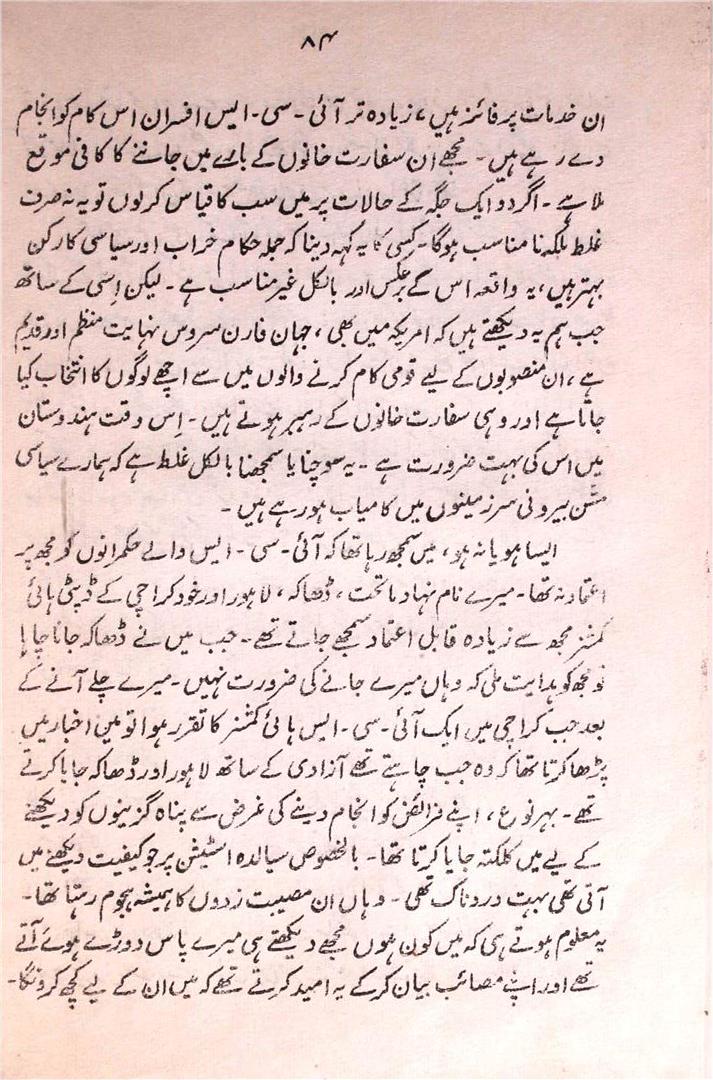 ۸۴
ان خدمات پر فائز ہیں، زیادہ تر آئی - سی - ایس افسران اس کام کو انجام
دے رہے ہیں - مجھے ان سفارت خانوں کے بارے میں جاننے کا کافی موقع
ملا ہے - اگر دو ایک جگہ کے حالات پر میں سب کا قیاس کر لوں تو یہ نہ صرف
غلط بلکہ نا مناسب ہوگا - کسی کا یہ کہہ دینا کہ جملہ حکام خراب اور سیاسی کارکن
بہتر ہیں، یہ واقعہ اس کے برعکس اور بالکل غیر مناسب ہے - لیکن اِسی کے ساتھ
جب ہم یہ دیکھتے ہیں کہ امریکہ میں بھی، جہان فارن سروس نہایت منظم اور قدیم
ہے، ان منصوبوں کے لیے قومی کام کرنے والوں میں سے اچھے لوگوں کا انتخاب کیا
جاتا ہے اور وہی سفارت خانوں کے رہبر ہوتے ہیں - اِس وقت ہندوستان
میں اس کی بہت ضرورت ہے - یہ سوچنا یا سمجھنا بالکل غلط ہے کہ ہمارے سیاسی
مشن بیرونی سرزمینوں میں کامیاب ہو رہے ہیں -
ایسا ہو یا نہ ہو، میں سمجھ رہا تھا کہ آئی - سی - ایس والے حکمرانوں کو مجھ پر
اعتماد نہ تھا - میرے نام نہاد ماتحت، ڈھاکہ، لاہور اور خود کراچی کے ڈپٹی ہائی
کمشنر مجھ سے زیادہ قابل اعتماد سمجھے جاتے تھے - جب میں نے ڈھاکہ جانا چاہا
تو مجھ کو ہدایت ملی کہ وہاں میرے جانے کی ضرورت نہیں - میرے چلے آنے کے
بعد جب کراچی میں ایک آئی - سی - ایس ہائی کمشنر کا تقرر ہوا تو میں اخبار میں
پڑھا کرتا تھا کہ وہ جب چاہتے تھے آزادی کے ساتھ لاہور اور ڈھاکہ جایا کرتے
تھے - بہر نوع، اپنے فرائض کو انجام دینے کی غرض سے پناہ گزینوں کو دیکھنے
کے لیے میں کلکتہ جایا کرتا تھا - بالخصوص سیالدہ اسٹیشن پر جو کیفیت دیکھنے میں
آتی تھی بہت دردناک تھی - وہاں ان مصیبت زدوں کا ہمیشہ ہجوم رہتا تھا -
یہ معلوم ہوتے ہی کہ میں کون ہوں مجھے دیکھتے ہی میرے پاس دوڑے ہوئے آتے
تھے اور اپنے مصائب بیان کر کے یہ امید کرتے تھے کہ میں ان کے لیے کچھ کرونگا -